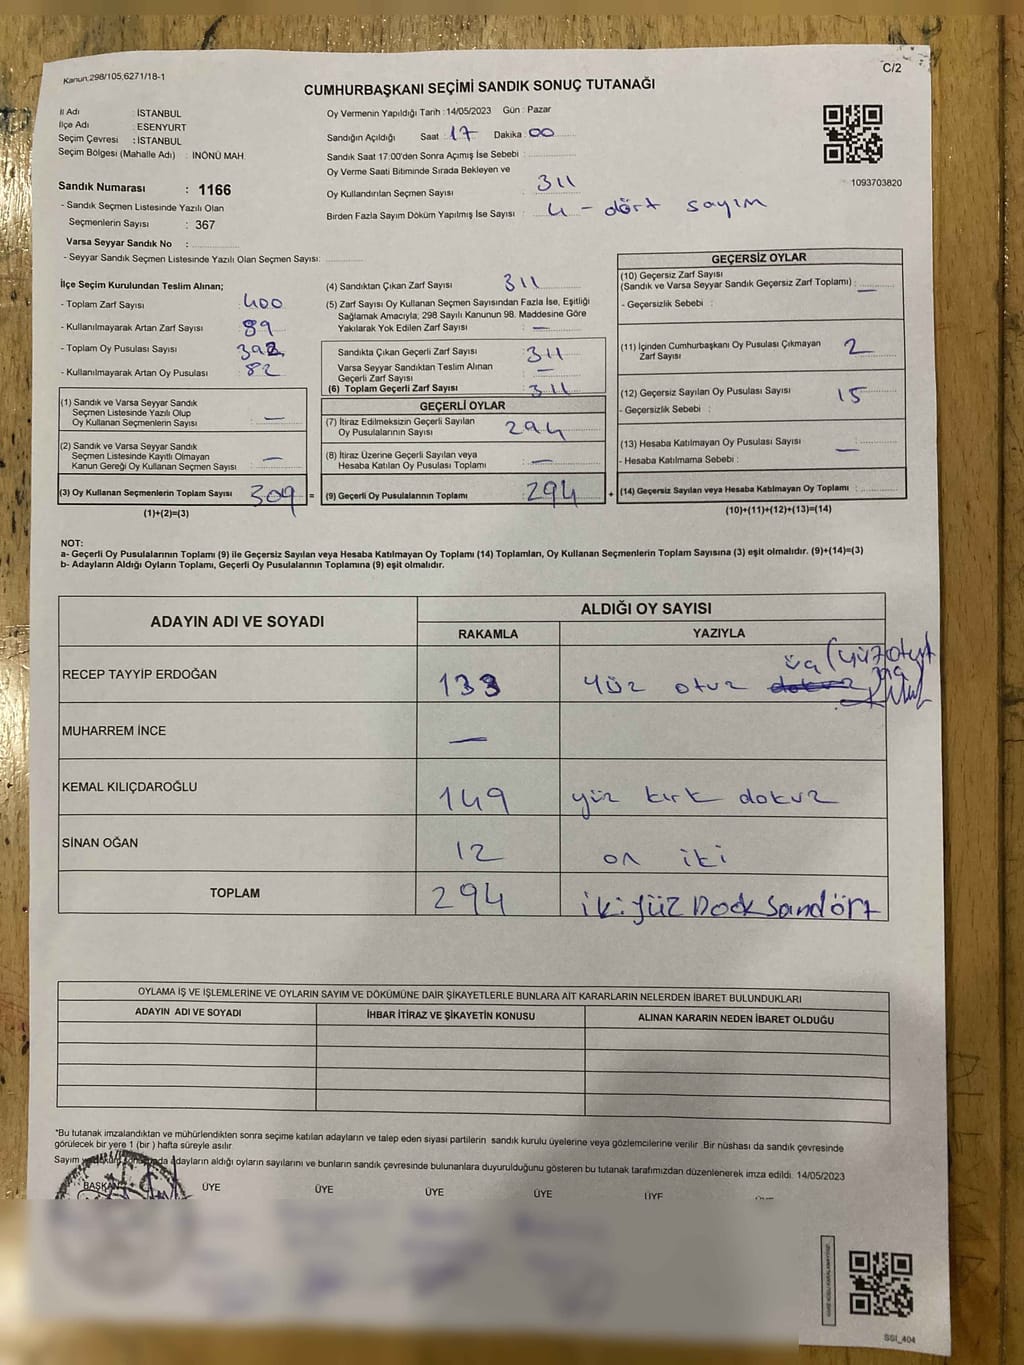 Kanun,298/105,6271/18-1
C/2
CUMHURBAŞKANI SEÇİMİ SANDIK SONUÇ TUTANAĞI
İl Adı : İSTANBUL
İlçe Adı : ESENYURT
Seçim Çevresi : İSTANBUL
Seçim Bölgesi (Mahalle Adı) : İNÖNÜ MAH.
Sandık Numarası : 1166
- Sandık Seçmen Listesinde Yazılı Olan
Seçmenlerin Sayısı : 367
Varsa Seyyar Sandık No :
- Seyyar Sandık Seçmen Listesinde Yazılı Olan Seçmen Sayısı:
Oy Vermenin Yapıldığı Tarih : 14/05/2023 Gün : Pazar
Sandığın Açıldığı Saat : 17 Dakika : 00
Sandık Saat 17:00'den Sonra Açımış İse Sebebi :
Oy Verme Saati Bitiminde Sırada Bekleyen ve
Oy Kullandırılan Seçmen Sayısı : 311
Birden Fazla Sayım Döküm Yapılmış İse Sayısı : 4 - dört sayım
1093703820
İlçe Seçim Kurulundan Teslim Alınan;
- Toplam Zarf Sayısı : 400
- Kullanılmayarak Artan Zarf Sayısı : 89
- Toplam Oy Pusulası Sayısı : 392
- Kullanılmayarak Artan Oy Pusulası : 82
(1) Sandık ve Varsa Seyyar Sandık
Seçmen Listesinde Yazılı Olup
Oy Kullanan Seçmenlerin Sayısı : —
(2) Sandık ve Varsa Seyyar Sandık
Seçmen Listesinde Kayıtlı Olmayan
Kanun Gereği Oy Kullanan Seçmen Sayısı : —
(3) Oy Kullanan Seçmenlerin Toplam Sayısı : 309 =
(1)+(2)=(3)
(4) Sandıktan Çıkan Zarf Sayısı : 311
(5) Zarf Sayısı Oy Kullanan Seçmen Sayısından Fazla İse, Eşitliği
Sağlamak Amacıyla; 298 Sayılı Kanunun 98. Maddesine Göre
Yakılarak Yok Edilen Zarf Sayısı : —
Sandıkta Çıkan Geçerli Zarf Sayısı : 311
Varsa Seyyar Sandıktan Teslim Alınan
Geçerli Zarf Sayısı : —
(6) Toplam Geçerli Zarf Sayısı : 311
GEÇERLİ OYLAR
(7) İtiraz Edilmeksizin Geçerli Sayılan
Oy Pusulalarının Sayısı : 294
(8) İtiraz Üzerine Geçerli Sayılan veya
Hesaba Katılan Oy Pusulası Toplamı : —
(9) Geçerli Oy Pusulalarının Toplamı : 294 +
GEÇERSİZ OYLAR
(10) Geçersiz Zarf Sayısı
(Sandık ve Varsa Seyyar Sandık Geçersiz Zarf Toplamı) : —
- Geçersizlik Sebebi :
(11) İçinden Cumhurbaşkanı Oy Pusulası Çıkmayan
Zarf Sayısı : 2
(12) Geçersiz Sayılan Oy Pusulası Sayısı : 15
- Geçersizlik Sebebi :
(13) Hesaba Katılmayan Oy Pusulası Sayısı : —
- Hesaba Katılmama Sebebi :
(14) Geçersiz Sayılan veya Hesaba Katılmayan Oy Toplamı :
(10)+(11)+(12)+(13)=(14)
NOT:
a- Geçerli Oy Pusulalarının Toplamı (9) ile Geçersiz Sayılan veya Hesaba Katılmayan Oy Toplamı (14) Toplamları, Oy Kullanan Seçmenlerin Toplam Sayısına (3) eşit olmalıdır. (9)+(14)=(3)
b- Adayların Aldığı Oyların Toplamı, Geçerli Oy Pusulalarının Toplamına (9) eşit olmalıdır.
ADAYIN ADI VE SOYADI ALDIĞI OY SAYISI
RAKAMLA YAZIYLA
RECEP TAYYİP ERDOĞAN 133 yüz otuz üç
MUHARREM İNCE —
KEMAL KILIÇDAROĞLU 149 yüz kırk dokuz
SİNAN OĞAN 12 on iki
TOPLAM 294 ikiyüz Doksandört
OYLAMA İŞ VE İŞLEMLERİNE VE OYLARIN SAYIM VE DÖKÜMÜNE DAİR ŞİKAYETLERLE BUNLARA AİT KARARLARIN NELERDEN İBARET BULUNDUKLARI
ADAYIN ADI VE SOYADI İHBAR İTİRAZ VE ŞİKAYETİN KONUSU ALINAN KARARIN NEDEN İBARET OLDUĞU
*Bu tutanak imzalandıktan ve mühürlendikten sonra seçime katılan adayların ve talep eden siyasi partilerin sandık kurulu üyelerine veya gözlemcilerine verilir. Bir nüshası da sandık çevresinde
görülecek bir yere 1 (bir) hafta süreyle asılır.
Sayım ve döküm sonunda adayların aldığı oyların sayılarını ve bunların sandık çevresinde bulunanlara duyurulduğunu gösteren bu tutanak tarafımızdan düzenlenerek imza edildi. 14/05/2023
BAŞKAN ÜYE ÜYE ÜYE ÜYE ÜYE
SSI_404